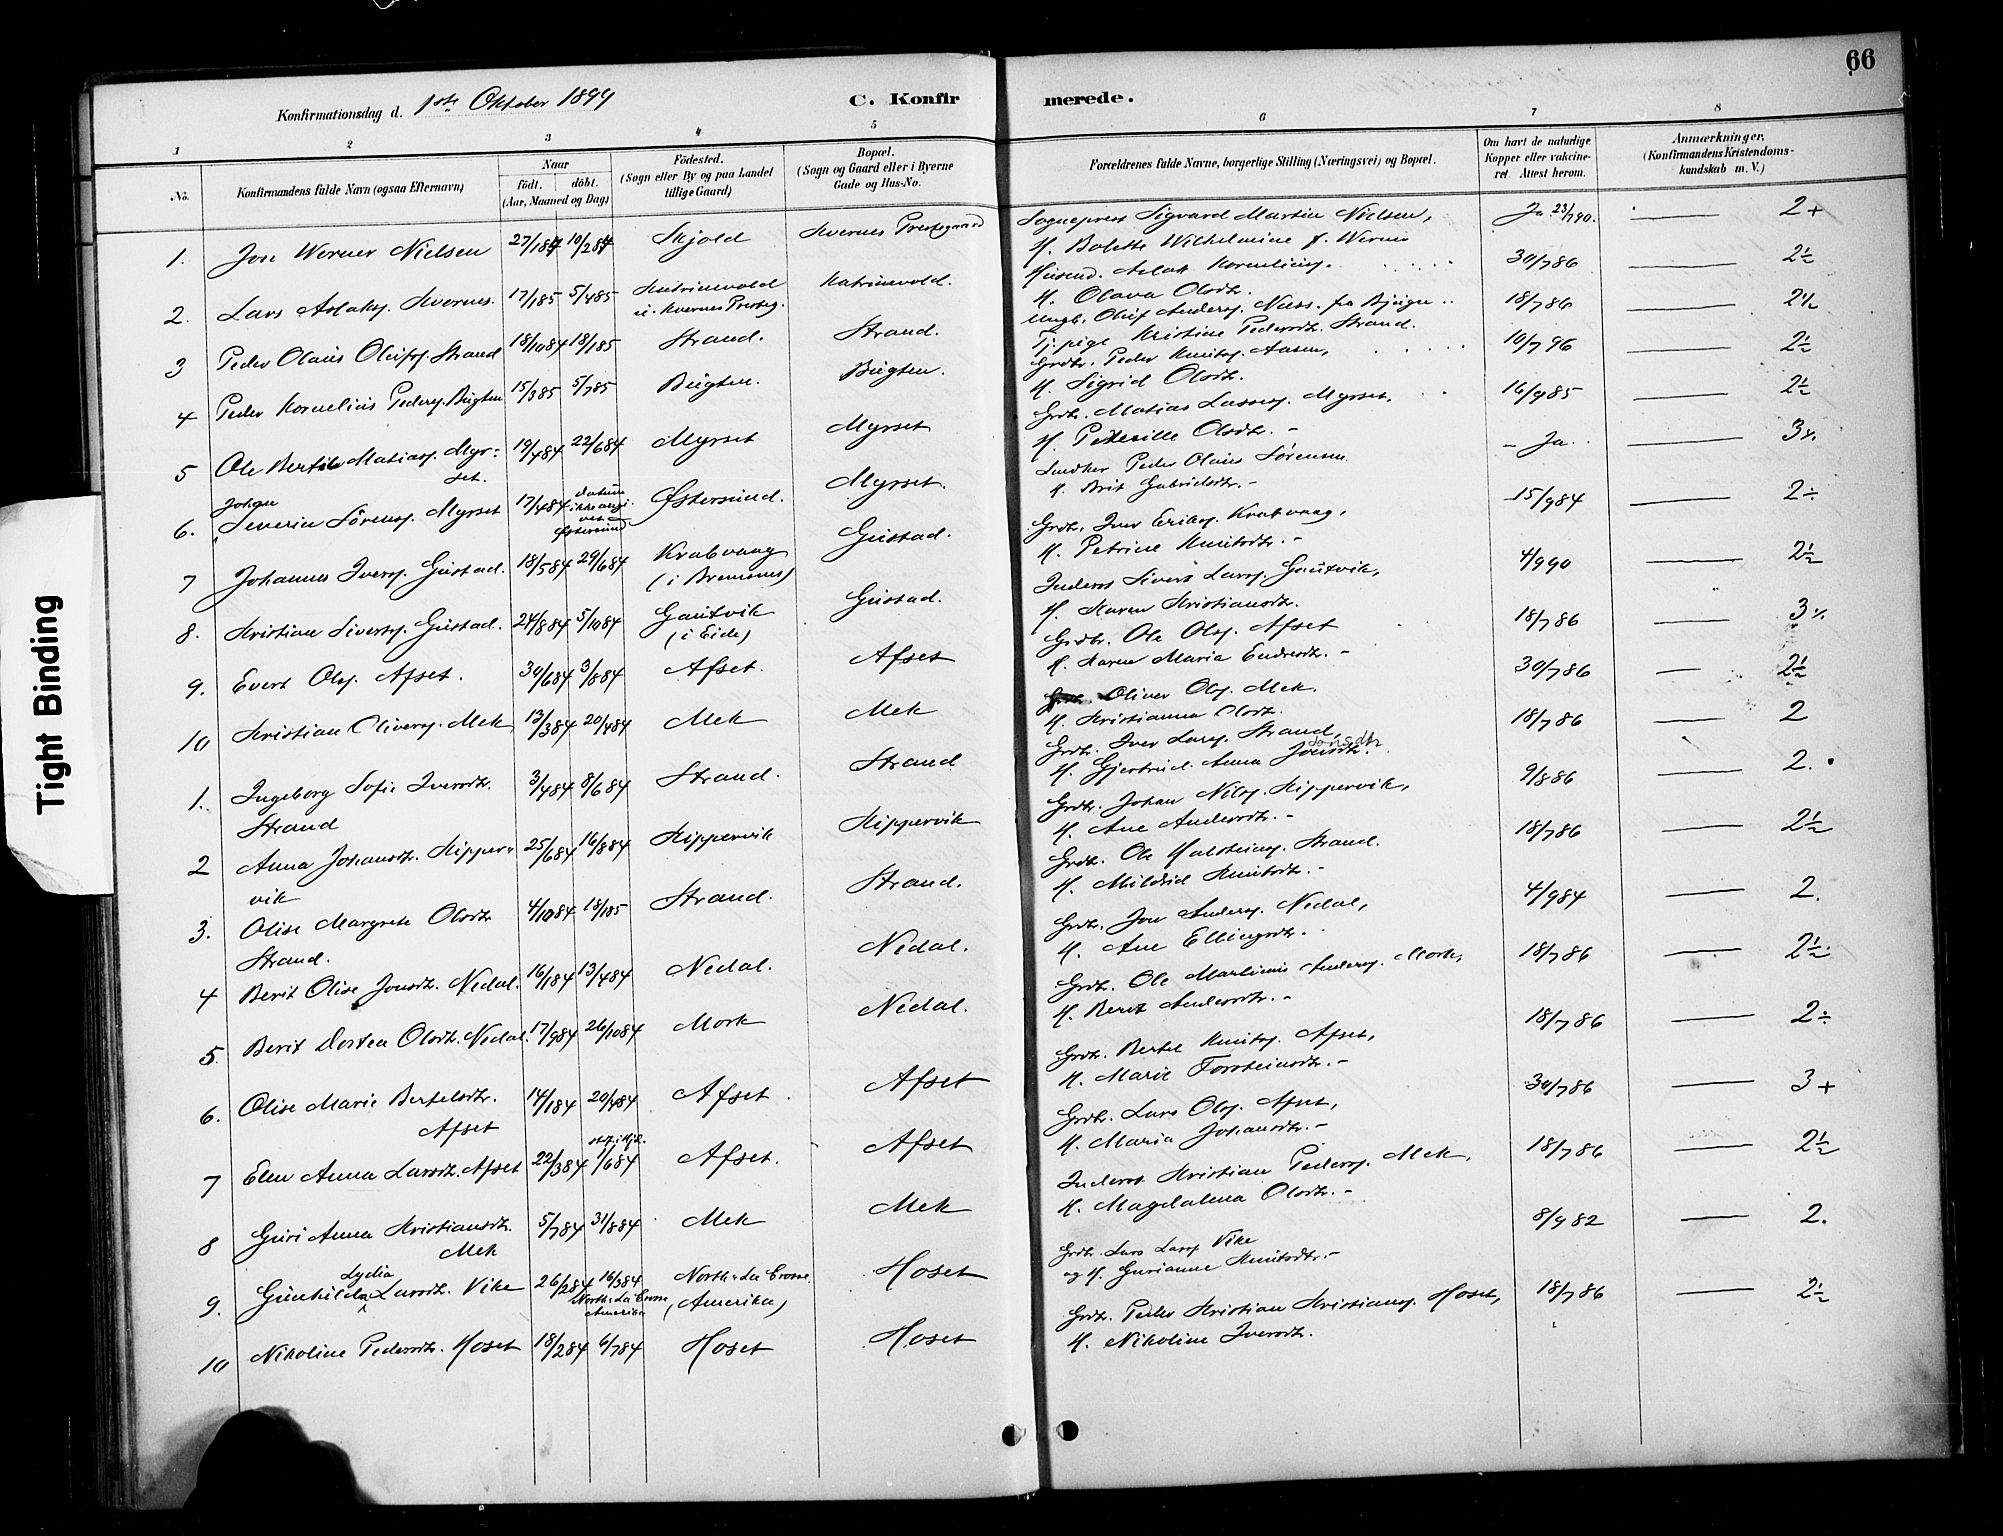 66
Konfirmationsdag d. 1ste Oktober 1899
C. Konfirmerede.
1 2 3 4 5 6 7 8
No.
Konfirmandens fulde Navn (ogsaa Efternavn)
Naar
födt. döbt.
(Aar, Maaned og Dag)
Födested.
(Sogn eller By og paa Landet
tillige Gaard)
Bopæl.
(Sogn og Gaard eller i Byerne
Gade og Hus-No.
Forældrenes fulde Navne, borgerlige Stilling (Næringsvei) og Bopæl.
Om havt de naturlige
Kopper eller vakcine-
ret. Attest herom.
Anmærkninger.
(Konfirmandens Kristendoms-
kundskab m. V.)
1. Jon Werner Nielsen 27/1 84 10/2 84 Skjold Kvernes Prestegaard Sogneprest Sigvard Martin Nielsen, Ja 23/7 90. 2+
H. Bolette Wilhelmine f. Werner
2. Lars Aslaks. Kvernes. 17/1 85 5/4 85 Katrinevold Katrinevold. Husmd. Aslak 30/7 86 2½
u. Kvernes Presteg. H. Olava Olsdtr.
3 Peder Olaus Olufs. Strand 18/10 84 18/1 85 Strand. Strand. Ungk. Oluf Anders. Næss. fra Bjugn 18/7 86 2½
Tj.pige Kristine Pedersdtr. Strand.
4 Peder Kornelius Peders. Bugten 15/3 85 5/7 85 Bugten. Bugten. Grdbr. Peder Knuts. Aasen, 10/7 96 2½
H. Sigrid Olsdtr.
5 Ole Bertil Matias. Myr- 19/4 84 22/6 84 Myrset Myrset Grdbr. Matias Lassesg. Myrset, 16/9 85 2½
set. H. Pernille Olsdtr.
6. Johan Severin Sörens. Myrset 17/4 84 datum ikke angi- vet Östersund Östersund. Myrset. Snedker Peder Olaus Sörensen - Ja. 3
H. Brit Gabrielsdtr.
7 Johannes Ivers. Gustad. 18/5 84 29/6 84 Krabvaag Gustad. Grdbr. Iver Eriks. Krabvaag, 15/9 84 2÷
(i Bremsnes) H. Petrine Knutsdtr.
8. Kristian Siverts. Gustad. 24/8 84 5/10 84 Gautvik Gustad. Inderst Sivert Lars. Gautvik, 4/9 90 2½
(i Eide) H. Karen Kristiansdtr.
9. Evert Ols. Afset. 30/6 84 3/8 84 Afset. Afset Grdbr. Ole Ols. Afset 18/7 86 3
H. Karen Maria Endresdtr.
10 Kristian Olivers. Mek 13/3 84 20/4 84 Mek Mek Oliver Ols. Mek. 30/7 86 2½
H. Kristianna Olsdtr.
1. Ingeborg Sofie Iversdtr. 3/4 84 8/6 84 Strand. Strand Grdbr. Iver Lars. Strand, 18/7 86 2
Strand H. Gjertrud Anna Jonsdtr. Jonsdtr
2 Anna Johansdtr. Kipper- 25/6 84 16/8 84 Kippervik Kippervik Grdbr. Johan Nils. Kippervik, 9/8 86 2.
vik H. Ane Andersdtr.
3. Olise Margrete Olsdtr 4/10 84 18/1 85 Strand. Strand. Grdbr. Ole Halsteins. Strand. 18/7 86 2½
Strand. H. Mildrid Knutsdtr.
4 Berit Olise Jonsdtr. Nedal. 16/1 84 13/4 84 Nedal. Nedal. Grdbr. Jon Anders. Nedal, 4/9 84 2.
H. Ane Ellingsdtr.
5. Berit Dortea Olsdtr. Nedal. 17/9 84 26/10 84 Mork Nedal. Grdbr. Ole Martinus Anders. Mork, 18/7 86 2½
H. Berit Andersdtr.
6. Olise Marie Bertelsdtr. 14/1 84 20/4 84 Afset Afset Grdbr. Bertel Knuts. Afset, 18/7 86 2÷
Afset H. Marit Torsteinsdtr.
7 Elen Anna Larsdtr. Afset 22/3 84 1/6 84 Afset. Afset Grdbr. Lars Ols. Afset, 30/7 86 3+
H. Maria Johansdtr.
8 Guri Anna Kristiansdtr. 5/7 84 31/8 84 Mek Mek Inderst Kristian Peders. Mek, 18/7 86 2½
Mek H. Magdalena Olsdtr.
9. Gunhilda Lydia Larsdtr. Vike 26/2 84 16/3 84 North-La Crosse Amerika North-La Crosse. Hoset Grdbr. Lars Lars. Vike 8/9 82 2.
(Amerika) og H. Gurianne Knutsdtr.
10 Nikoline Pedersdtr. Hoset 18/2 84 6/7 84 Hoset Hoset Grdbr. Peder Kristian Kristians. Hoset, 18/7 86 2½
H. Nikoline Iversdtr.
Tight Binding